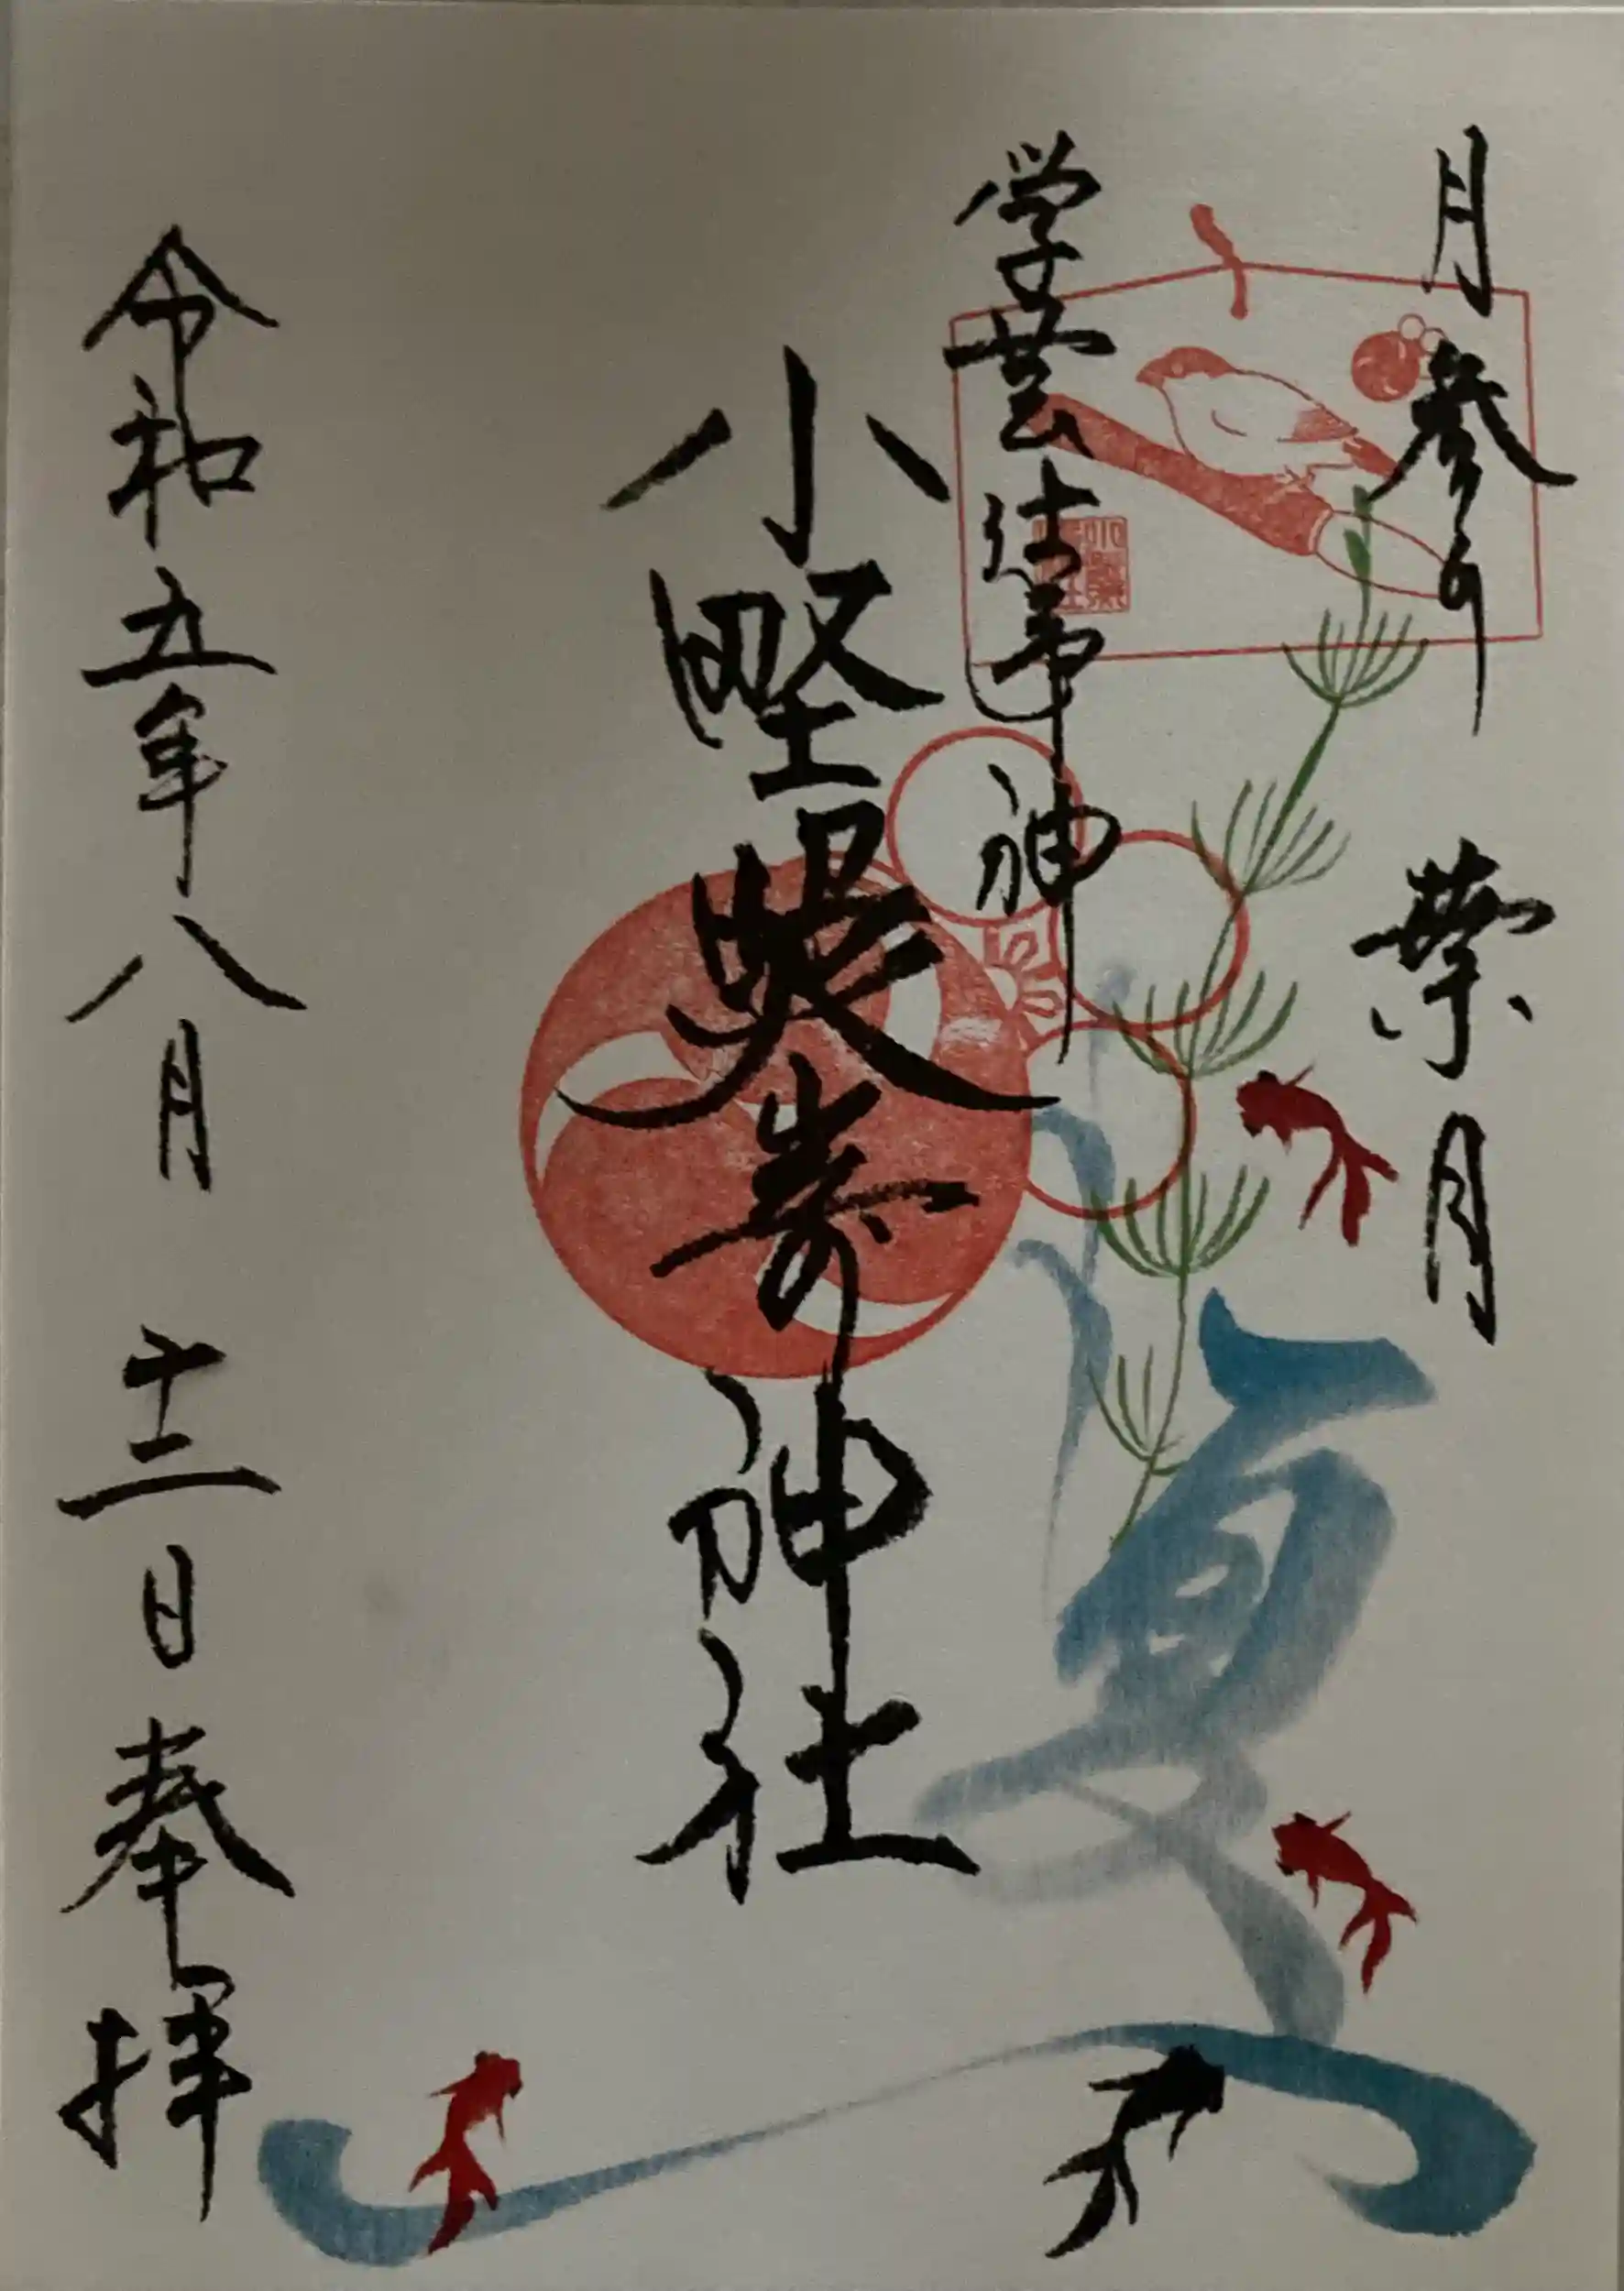 月参り 葉月
学芸仕事神
小野照崎神社
夏
令和五年八月十二日奉拝